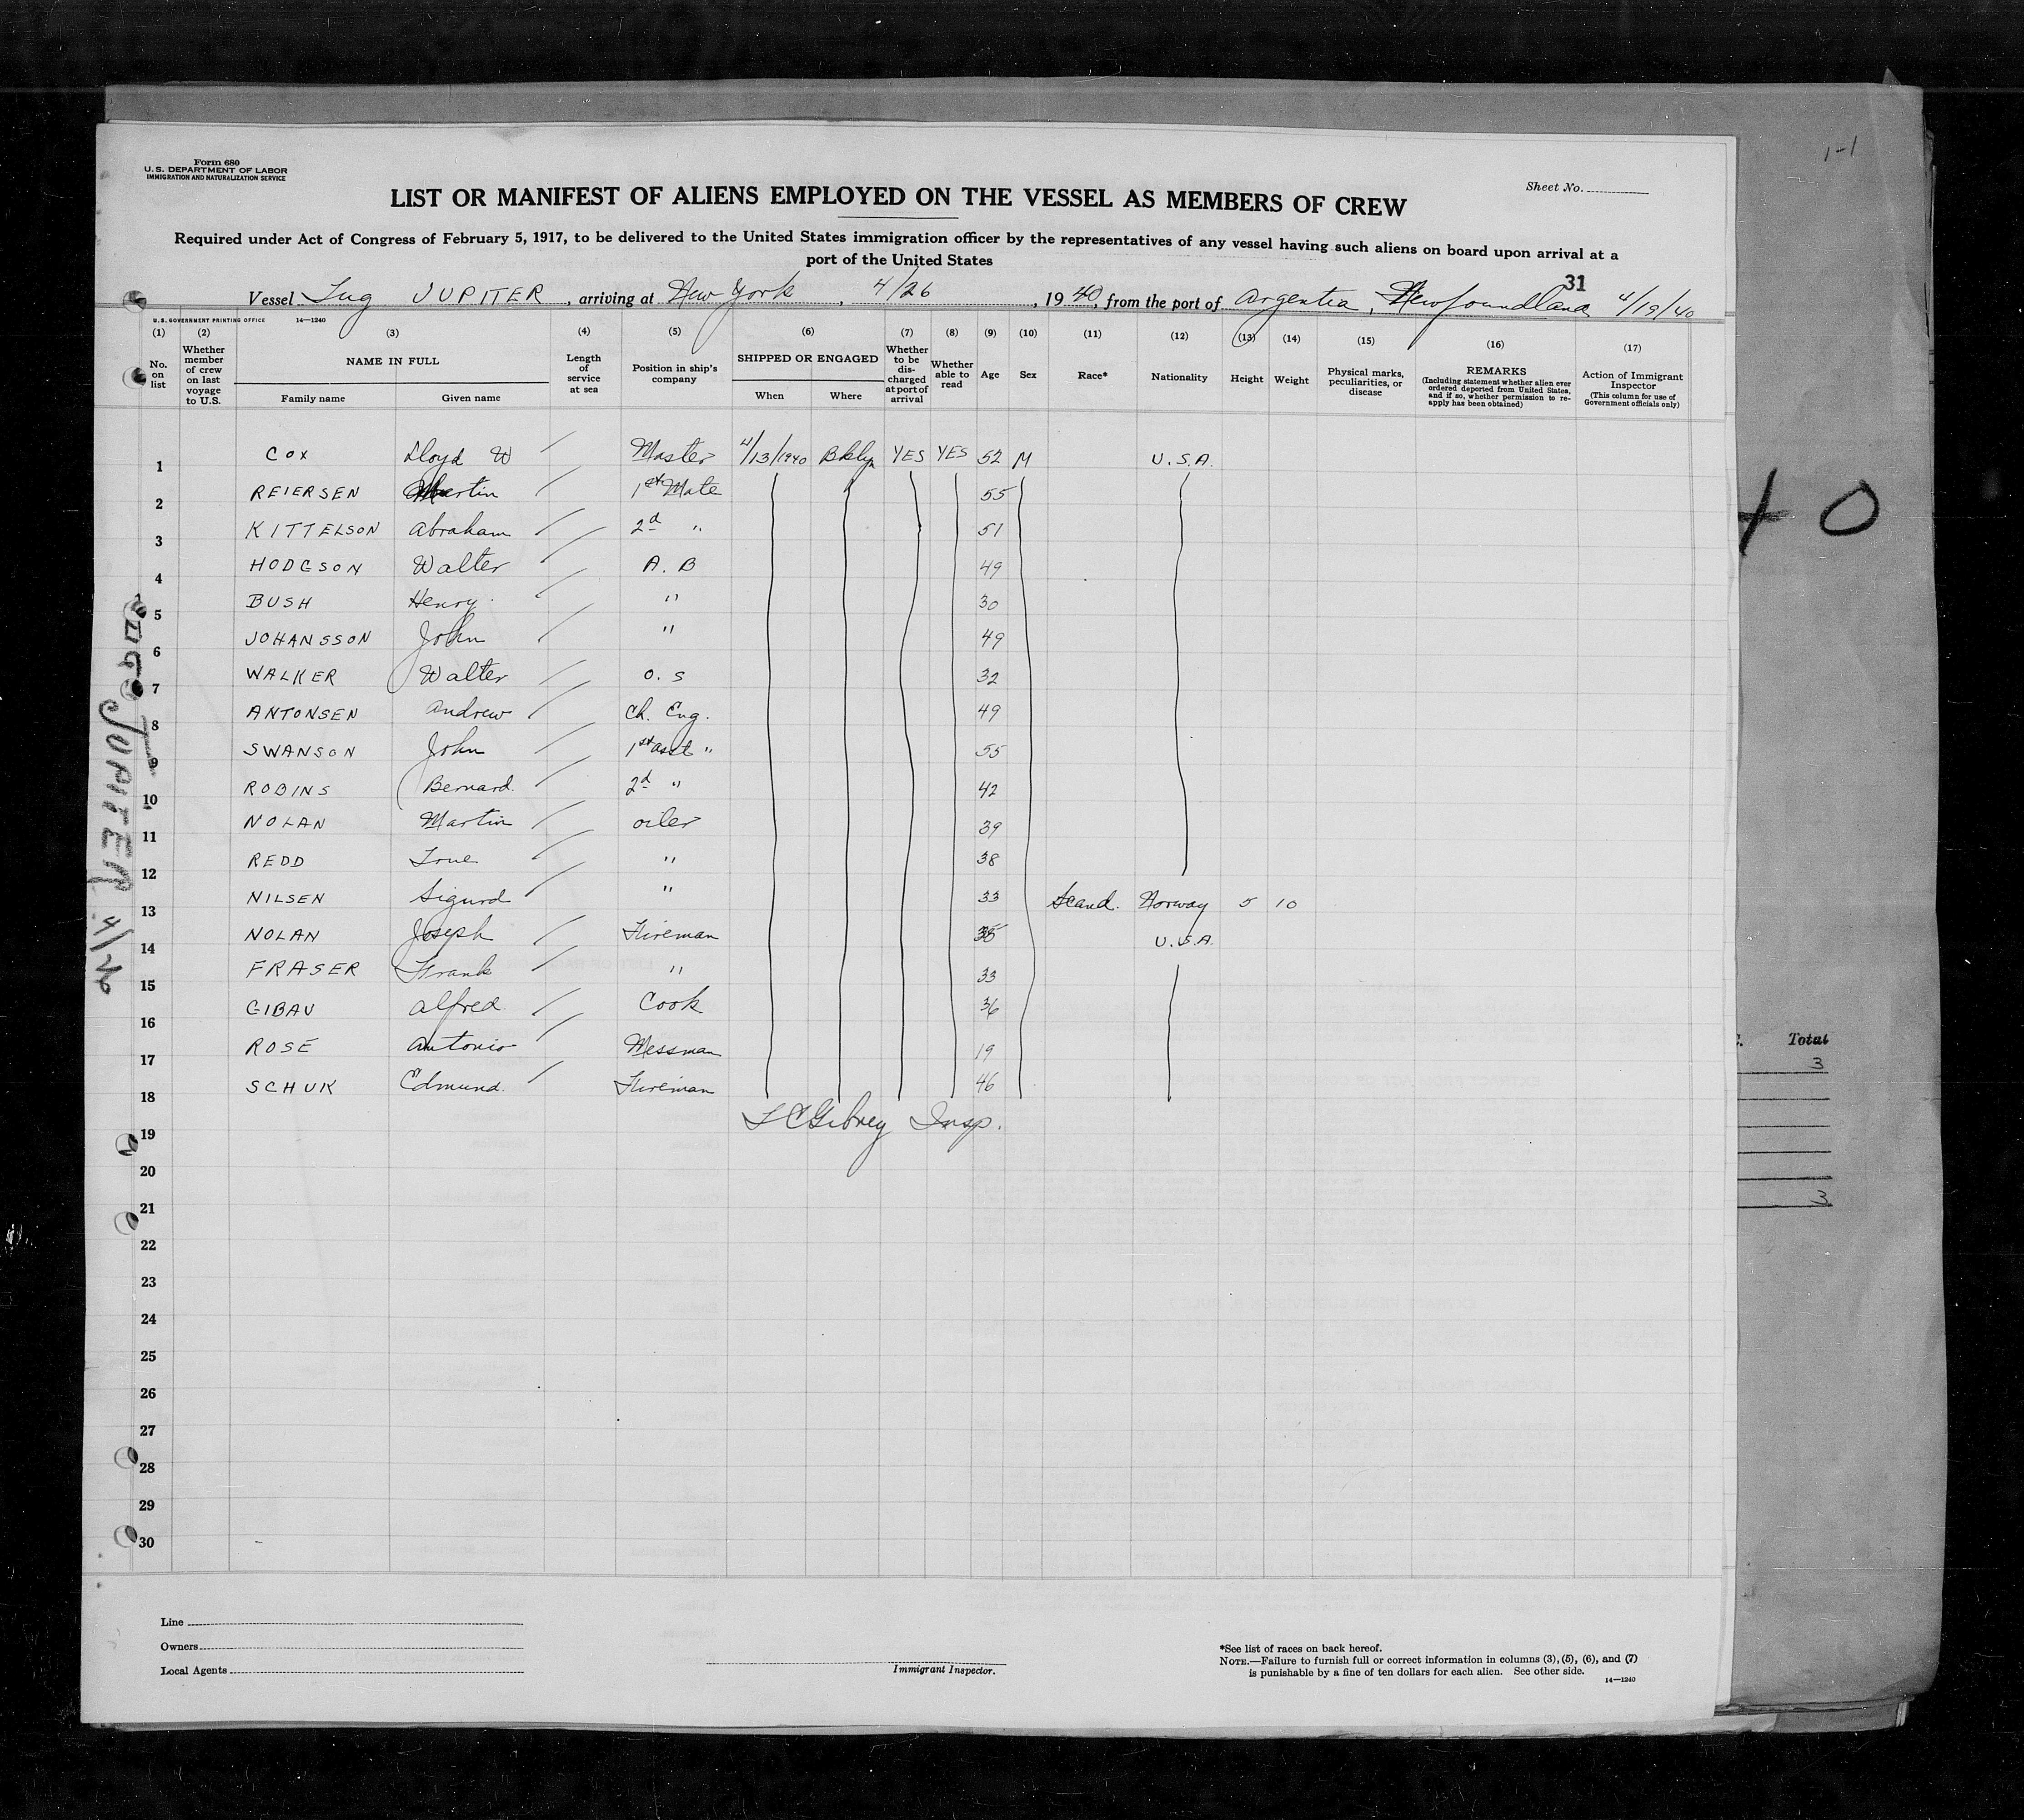 Form 680
U.S. DEPARTMENT OF LABOR
IMMIGRATION AND NATURALIZATION SERVICE
1-1
Sheet No.
LIST OR MANIFEST OF ALIENS EMPLOYED ON THE VESSEL AS MEMBERS OF CREW
Required under Act of Congress of February 5, 1917, to be delivered to the United States immigration officer by the representatives of any vessel having such aliens on board upon arrival at a
port of the United States
31
Vessel Tug JUPITER, arriving at New York, 4/26, 1940, from the port of Argentia, Newfoundland 4/19/40
U.S. GOVERNMENT PRINTING OFFICE 14—1240
(1) No. on list
(2) Whether member of crew on last voyage to U.S.
(3) NAME IN FULL
Family name Given name
(4) Length of service at sea
(5) Position in ship's company
(6) SHIPPED OR ENGAGED
When Where
(7) Whether to be discharged at port of arrival
(8) Whether able to read
(9) Age
(10) Sex
(11) Race*
(12) Nationality
(13) Height
(14) Weight
(15) Physical marks, peculiarities, or disease
(16) REMARKS
(Including statement whether alien ever ordered deported from United States, and if so, whether permission to reapply has been obtained)
(17) Action of Immigrant Inspector
(This column for use of Government officials only)
1 COX Lloyd W Master 4/13/1940 Bklyn YES YES 52 M U.S.A.
2 REIERSEN Martin 1st Mate 55
3 KITTELSON Abraham 2d " 51
4 HODGSON Walter A. B 49
5 BUSH Henry " 30
6 JOHANSSON John " 49
7 WALKER Walter O. S 32
8 ANTONSEN Andrew Ch. Eng. 49
9 SWANSON John 1st asst " 55
10 ROBINS Bernard 2d " 42
11 NOLAN Martin oiler 39
12 REDD " 38
13 NILSEN Sigurd " 33 Scand. Norway 5 10
14 NOLAN Joseph Fireman U.S.A.
15 FRASER Frank " 33
16 GIBAU Alfred Cook 36
17 ROSE Antonio Messman 19
18 SCHUK Edmund Fireman 46
19
Insp.
20
21
22
23
24
25
26
27
28
29
30
JUPITER
40
Total
3
3
Line
Owners
Local Agents
Immigrant Inspector.
*See list of races on back hereof.
NOTE.—Failure to furnish full or correct information in columns (3), (5), (6), and (7)
is punishable by a fine of ten dollars for each alien. See other side.
14—1240